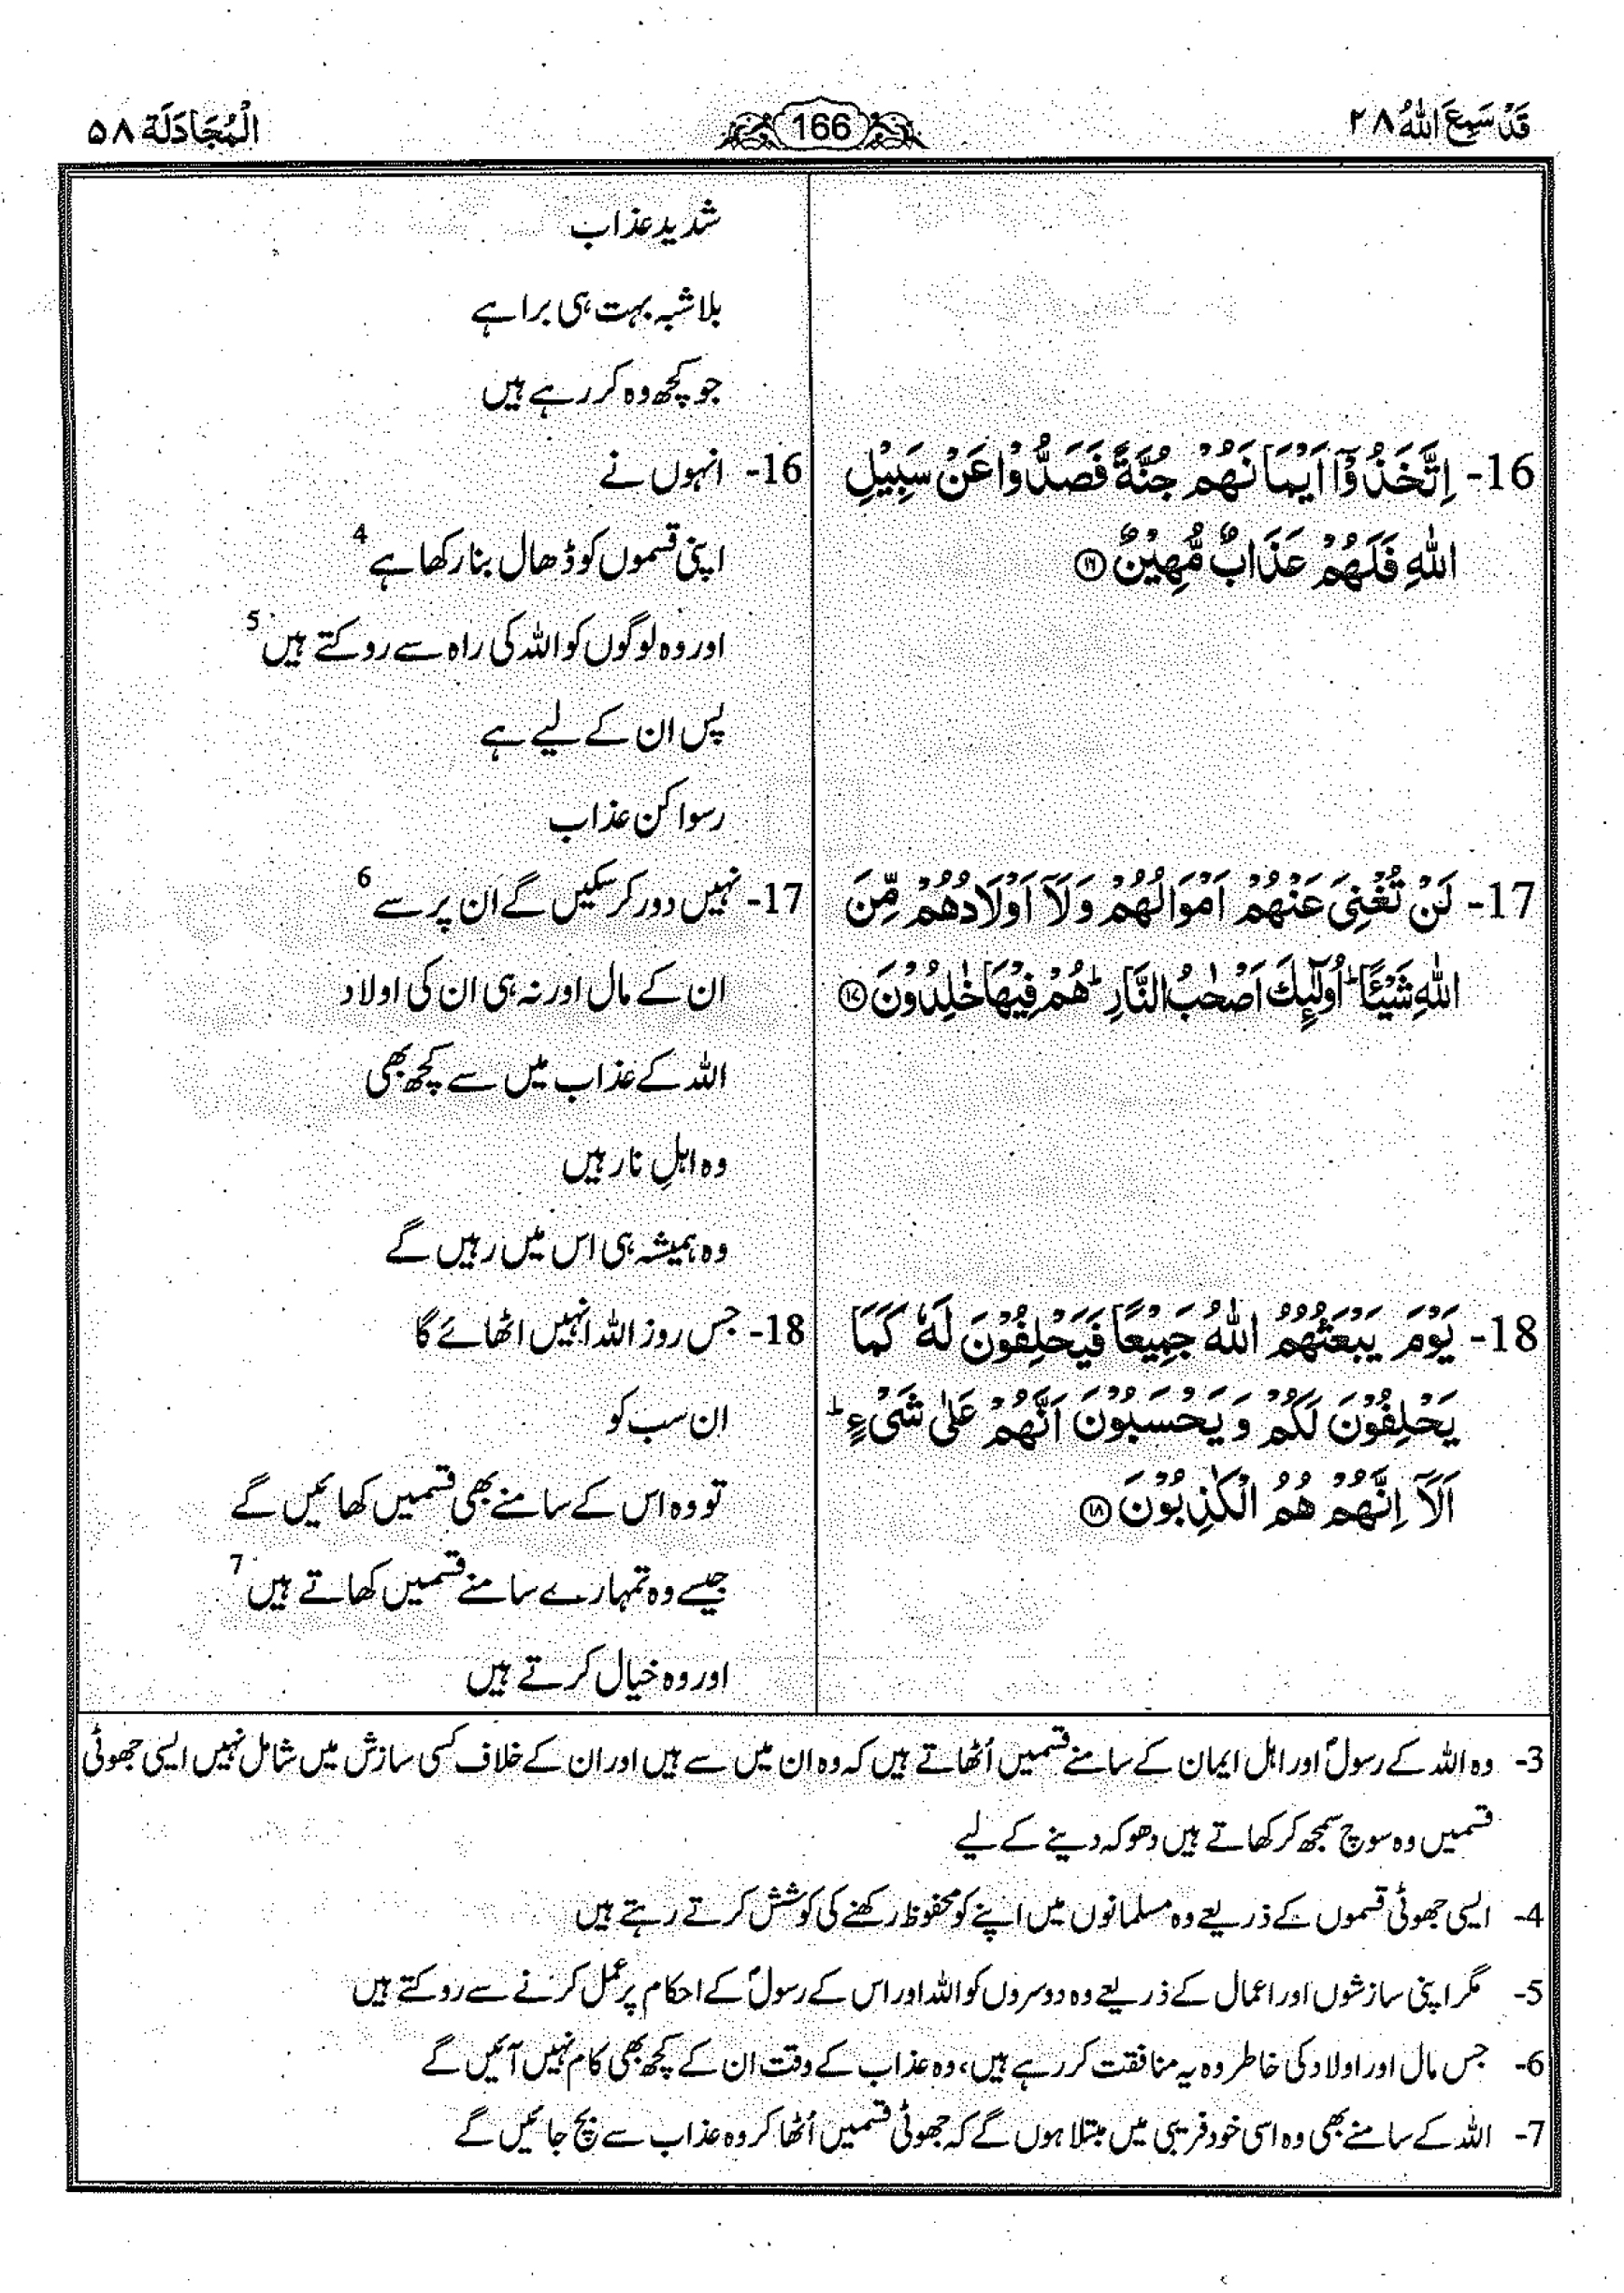 قَدْ سَمِعَ اللّٰهُ ٢٨
166
الْمُجَادَلَة ٥٨
شدید عذاب
بلاشبہ بہت ہی برا ہے
جو کچھ وہ کر رہے ہیں
16- اِتَّخَذُوْۤا اَيْمَانَهُمْ جُنَّةً فَصَدُّوْا عَنْ سَبِيْلِ
اللّٰهِ فَلَهُمْ عَذَابٌ مُّهِيْنٌ ۝١٦
16- انہوں نے
اپنی قسموں کو ڈھال بنا رکھا ہے 4
اور وہ لوگوں کو اللہ کی راہ سے روکتے ہیں 5
پس ان کے لیے ہے
رسوا کن عذاب
17- لَنْ تُغْنِيَ عَنْهُمْ اَمْوَالُهُمْ وَلَاۤ اَوْلَادُهُمْ مِّنَ
اللّٰهِ شَيْـًٔا ؕ اُولٰٓئِكَ اَصْحٰبُ النَّارِ ؕ هُمْ فِيْهَا خٰلِدُوْنَ ۝١٧
17- نہیں دور کر سکیں گے ان پر سے 6
ان کے مال اور نہ ہی ان کی اولاد
اللہ کے عذاب میں سے کچھ بھی
وہ اہلِ نار ہیں
وہ ہمیشہ ہی اس میں رہیں گے
18- يَوْمَ يَبْعَثُهُمُ اللّٰهُ جَمِيْعًا فَيَحْلِفُوْنَ لَهٗ كَمَا
يَحْلِفُوْنَ لَكُمْ وَيَحْسَبُوْنَ اَنَّهُمْ عَلٰى شَيْءٍ ؕ
اَلَاۤ اِنَّهُمْ هُمُ الْكٰذِبُوْنَ ۝١٨
18- جس روز اللہ انہیں اٹھائے گا
ان سب کو
تو وہ اس کے سامنے بھی قسمیں کھائیں گے
جیسے وہ تمہارے سامنے قسمیں کھاتے ہیں 7
اور وہ خیال کرتے ہیں
3- وہ اللہ کے رسولؐ اور اہل ایمان کے سامنے قسمیں اُٹھاتے ہیں کہ وہ ان میں سے ہیں اور ان کے خلاف کسی سازش میں شامل نہیں ایسی جھوٹی
قسمیں وہ سوچ سمجھ کر کھاتے ہیں دھوکہ دینے کے لیے
4- ایسی جھوٹی قسموں کے ذریعے وہ مسلمانوں میں اپنے کو محفوظ رکھنے کی کوشش کرتے رہتے ہیں
5- مگر اپنی سازشوں اور اعمال کے ذریعے وہ دوسروں کو اللہ اور اس کے رسولؐ کے احکام پر عمل کرنے سے روکتے ہیں
6- جس مال اور اولاد کی خاطر وہ یہ منافقت کر رہے ہیں، وہ عذاب کے وقت ان کے کچھ بھی کام نہیں آئیں گے
7- اللہ کے سامنے بھی وہ اسی خود فریبی میں مبتلا ہوں گے کہ جھوٹی قسمیں اُٹھا کر وہ عذاب سے بچ جائیں گے